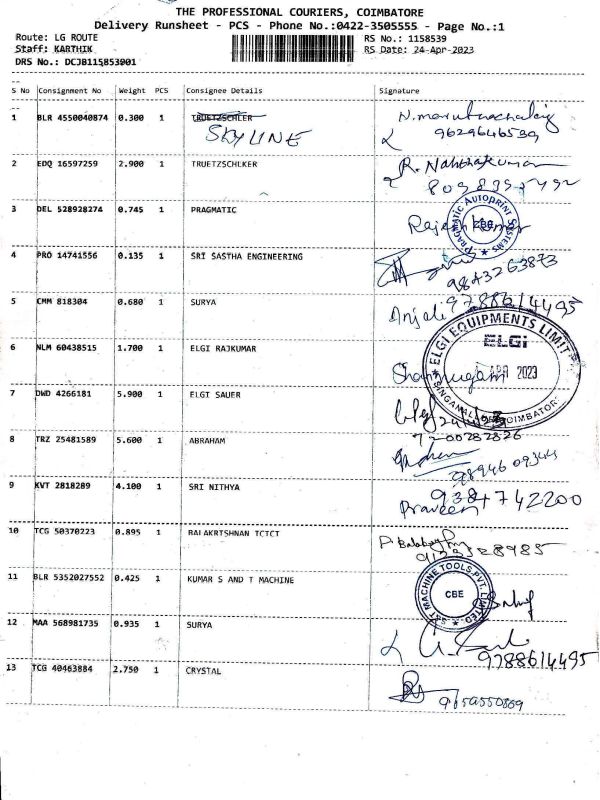 THE PROFESSIONAL COURIERS, COIMBATORE
Delivery Runsheet - PCS - Phone No.:0422-3505555 - Page No.:1
Route: LG ROUTE RS No.: 1158539
Staff: KARTHIK RS Date: 24-Apr-2023
DRS No.: DCJB115853901
S No Consignment No Weight PCS Consignee Details Signature
1 BLR 4550040874 0.300 1 TRUETZSCHLER
SKYLINE 9629646539
2 EDQ 16597259 2.900 1 TRUETZSCHLKER
3 DEL 528928274 0.745 1 PRAGMATIC
PRAGMATIC AUTOPRINT SYSTEMS
CBE
4 PRO 14741556 0.135 1 SRI SASTHA ENGINEERING
9843263873
5 CMM 818304 0.680 1 SURYA
Anjali 9788614495
ELGI EQUIPMENTS LIMIT
ELGI
6 NLM 60438515 1.700 1 ELGI RAJKUMAR
Shanmugam APR 2023
COIMBATOR
7 DWD 4266181 5.900 1 ELGI SAUER
8 TRZ 25481589 5.600 1 ABRAHAM
9 KVT 2818289 4.100 1 SRI NITHYA
Praveen 9384742200
10 TCG 50370223 0.895 1 BALAKRTSHNAN TCTCT
11 BLR 5352027552 0.425 1 KUMAR S AND T MACHINE
S&T MACHINE TOOLS.PVT. LIMITED
CBE
12 MAA 568981735 0.935 1 SURYA
9788614495
13 TCG 40463884 2.750 1 CRYSTAL